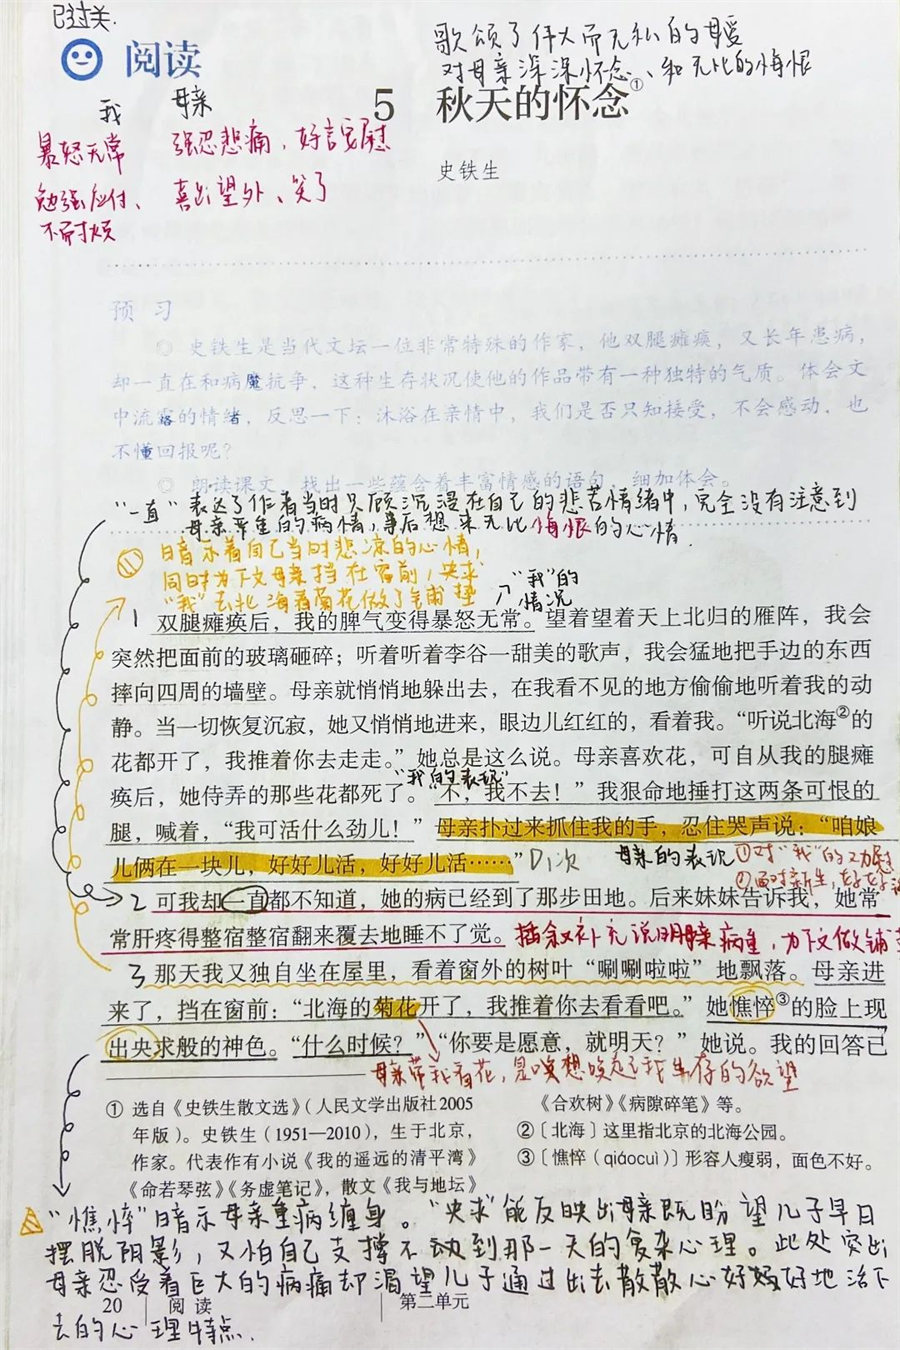 已过关.
阅读
歌颂了伟大而无私的母爱
对母亲深深怀念、和无比的悔恨
我 母亲
5 秋天的怀念①
暴怒无常 强忍悲痛，好言安慰
史铁生
勉强应付、 喜出望外、笑了
不耐烦
预 习
◎ 史铁生是当代文坛一位非常特殊的作家，他双腿瘫痪，又长年患病，
却一直在和病魔抗争，这种生存状况使他的作品带有一种独特的气质。体会文
中流露的情绪，反思一下：沐浴在亲情中，我们是否只知接受，不会感动，也
不懂回报呢？
◎ 朗读课文，找出一些蕴含着丰富情感的语句，细加体会。
"一直"表达了作者当时只顾沉浸在自己的悲苦情绪中，完全没有注意到
母亲严重的病情，事后想来无比悔恨的心情.
暗示着自己当时悲凉的心情，
同时为下文母亲挡在窗前，央求
"我"去北海看菊花做了铺垫
"我"的
情况
1 双腿瘫痪后，我的脾气变得暴怒无常。望着望着天上北归的雁阵，我会
突然把面前的玻璃砸碎；听着听着李谷一甜美的歌声，我会猛地把手边的东西
摔向四周的墙壁。母亲就悄悄地躲出去，在我看不见的地方偷偷地听着我的动
静。当一切恢复沉寂，她又悄悄地进来，眼边儿红红的，看着我。“听说北海②的
花都开了，我推着你去走走。”她总是这么说。母亲喜欢花，可自从我的腿瘫
"我的表现"
痪后，她侍弄的那些花都死了。“不，我不去！”我狠命地捶打这两条可恨的
腿，喊着，“我可活什么劲儿！”母亲扑过来抓住我的手，忍住哭声说：“咱娘
儿俩在一块儿，好好儿活，好好儿活……”
母亲的表现 ①对"我"的
②面对新生，好好
2 可我却一直都不知道，她的病已经到了那步田地。后来妹妹告诉我，她常
常肝疼得整宿整宿翻来覆去地睡不了觉。 插叙补充说明母亲病重，为下文做铺
3 那天我又独自坐在屋里，看着窗外的树叶“唰唰啦啦”地飘落。母亲进
来了，挡在窗前：“北海的菊花开了，我推着你去看看吧。”她憔悴③的脸上现
出央求般的神色。“什么时候？”“你要是愿意，就明天？”她说。我的回答已
母亲带我看花，是唤起我生存的欲望
① 选自《史铁生散文选》（人民文学出版社2005
年版）。史铁生（1951—2010），生于北京，
作家。代表作有小说《我的遥远的清平湾》
《命若琴弦》《务虚笔记》，散文《我与地坛》
《合欢树》《病隙碎笔》等。
②〔北海〕这里指北京的北海公园。
③〔憔悴（qiáocuì）〕形容人瘦弱，面色不好。
"憔悴"暗示母亲重病缠身。"央求"能反映出母亲既盼望儿子早日
摆脱阴影，又怕自己支撑不动到那一天的复杂心理。此处突出
母亲忍受着巨大的病痛却渴望儿子通过出去散散心好好地活下
去的心理特点.
20 阅读 第二单元